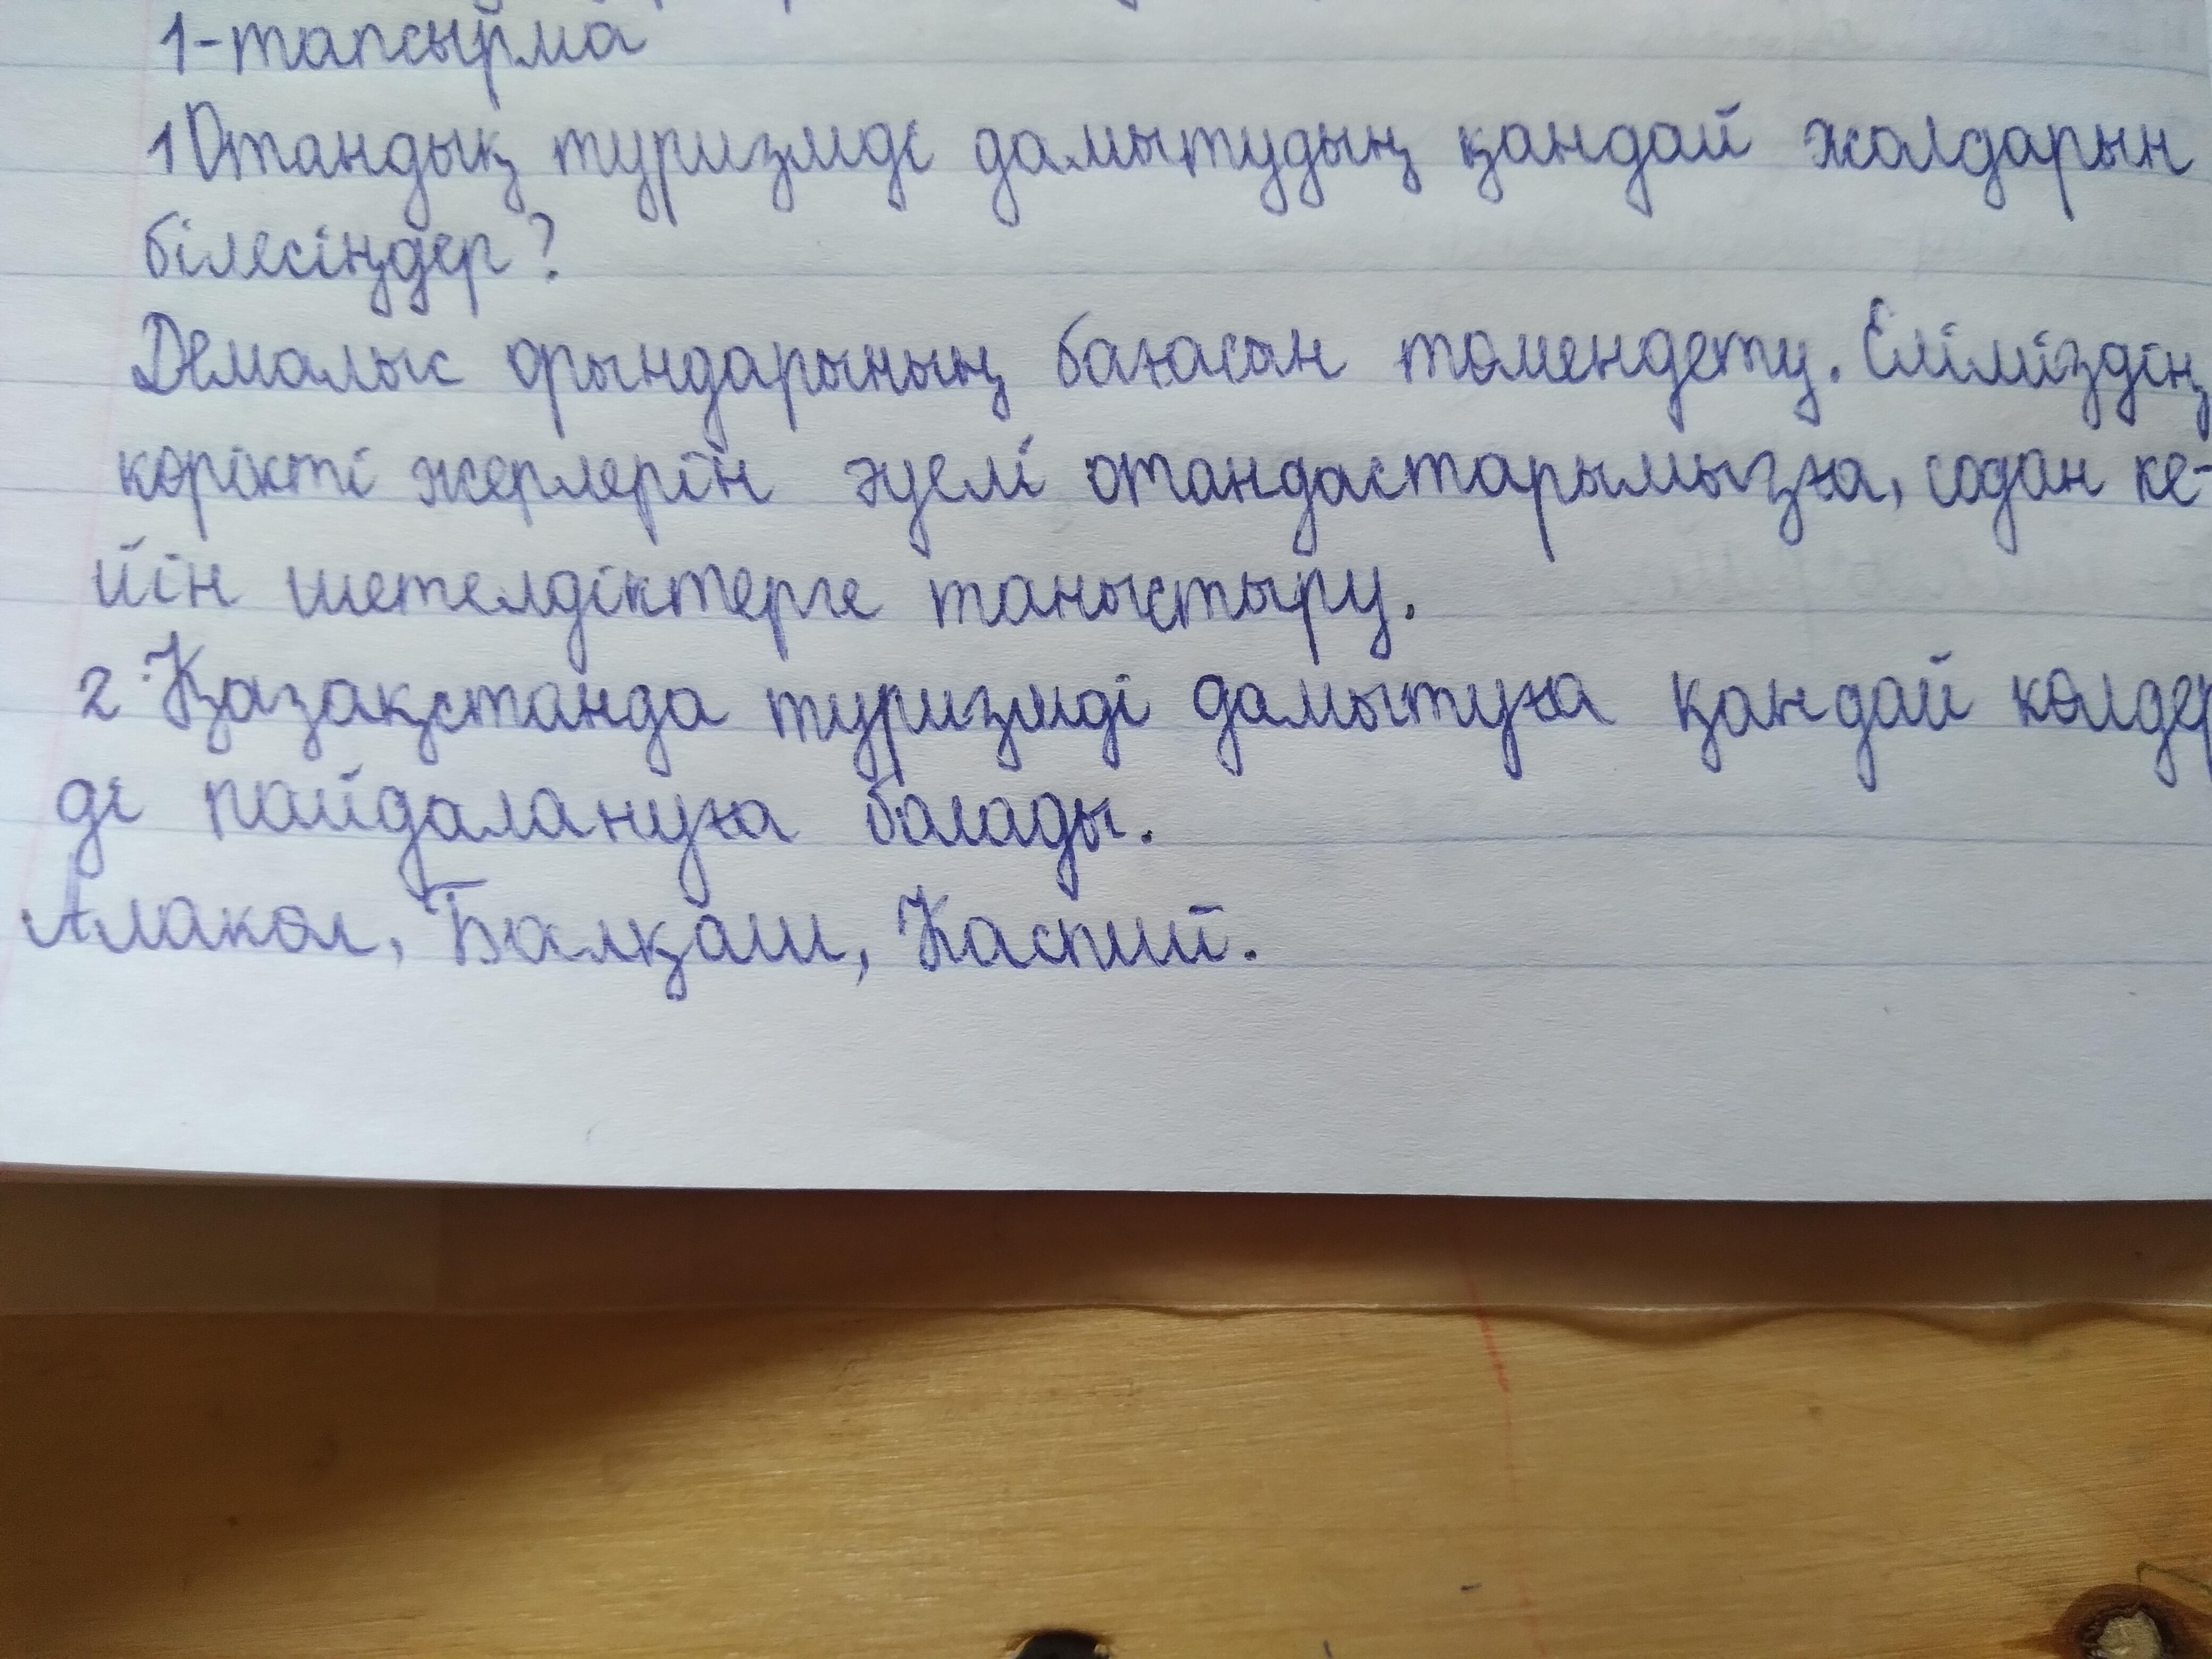 1-тапсырма
1 Отандық туризмді дамытудың қандай жолдарын
білесіңдер?
Демалыс орындарының бағасын төмендету. Еліміздің
көрікті жерлерін әуелі отандастарымызға, содан ке-
йін шетелдіктерге таныстыру.
2 Қазақстанда туризмді дамытуға қандай көлдер
ді пайдалануға болады.
Алакөл, Балқаш, Каспий.